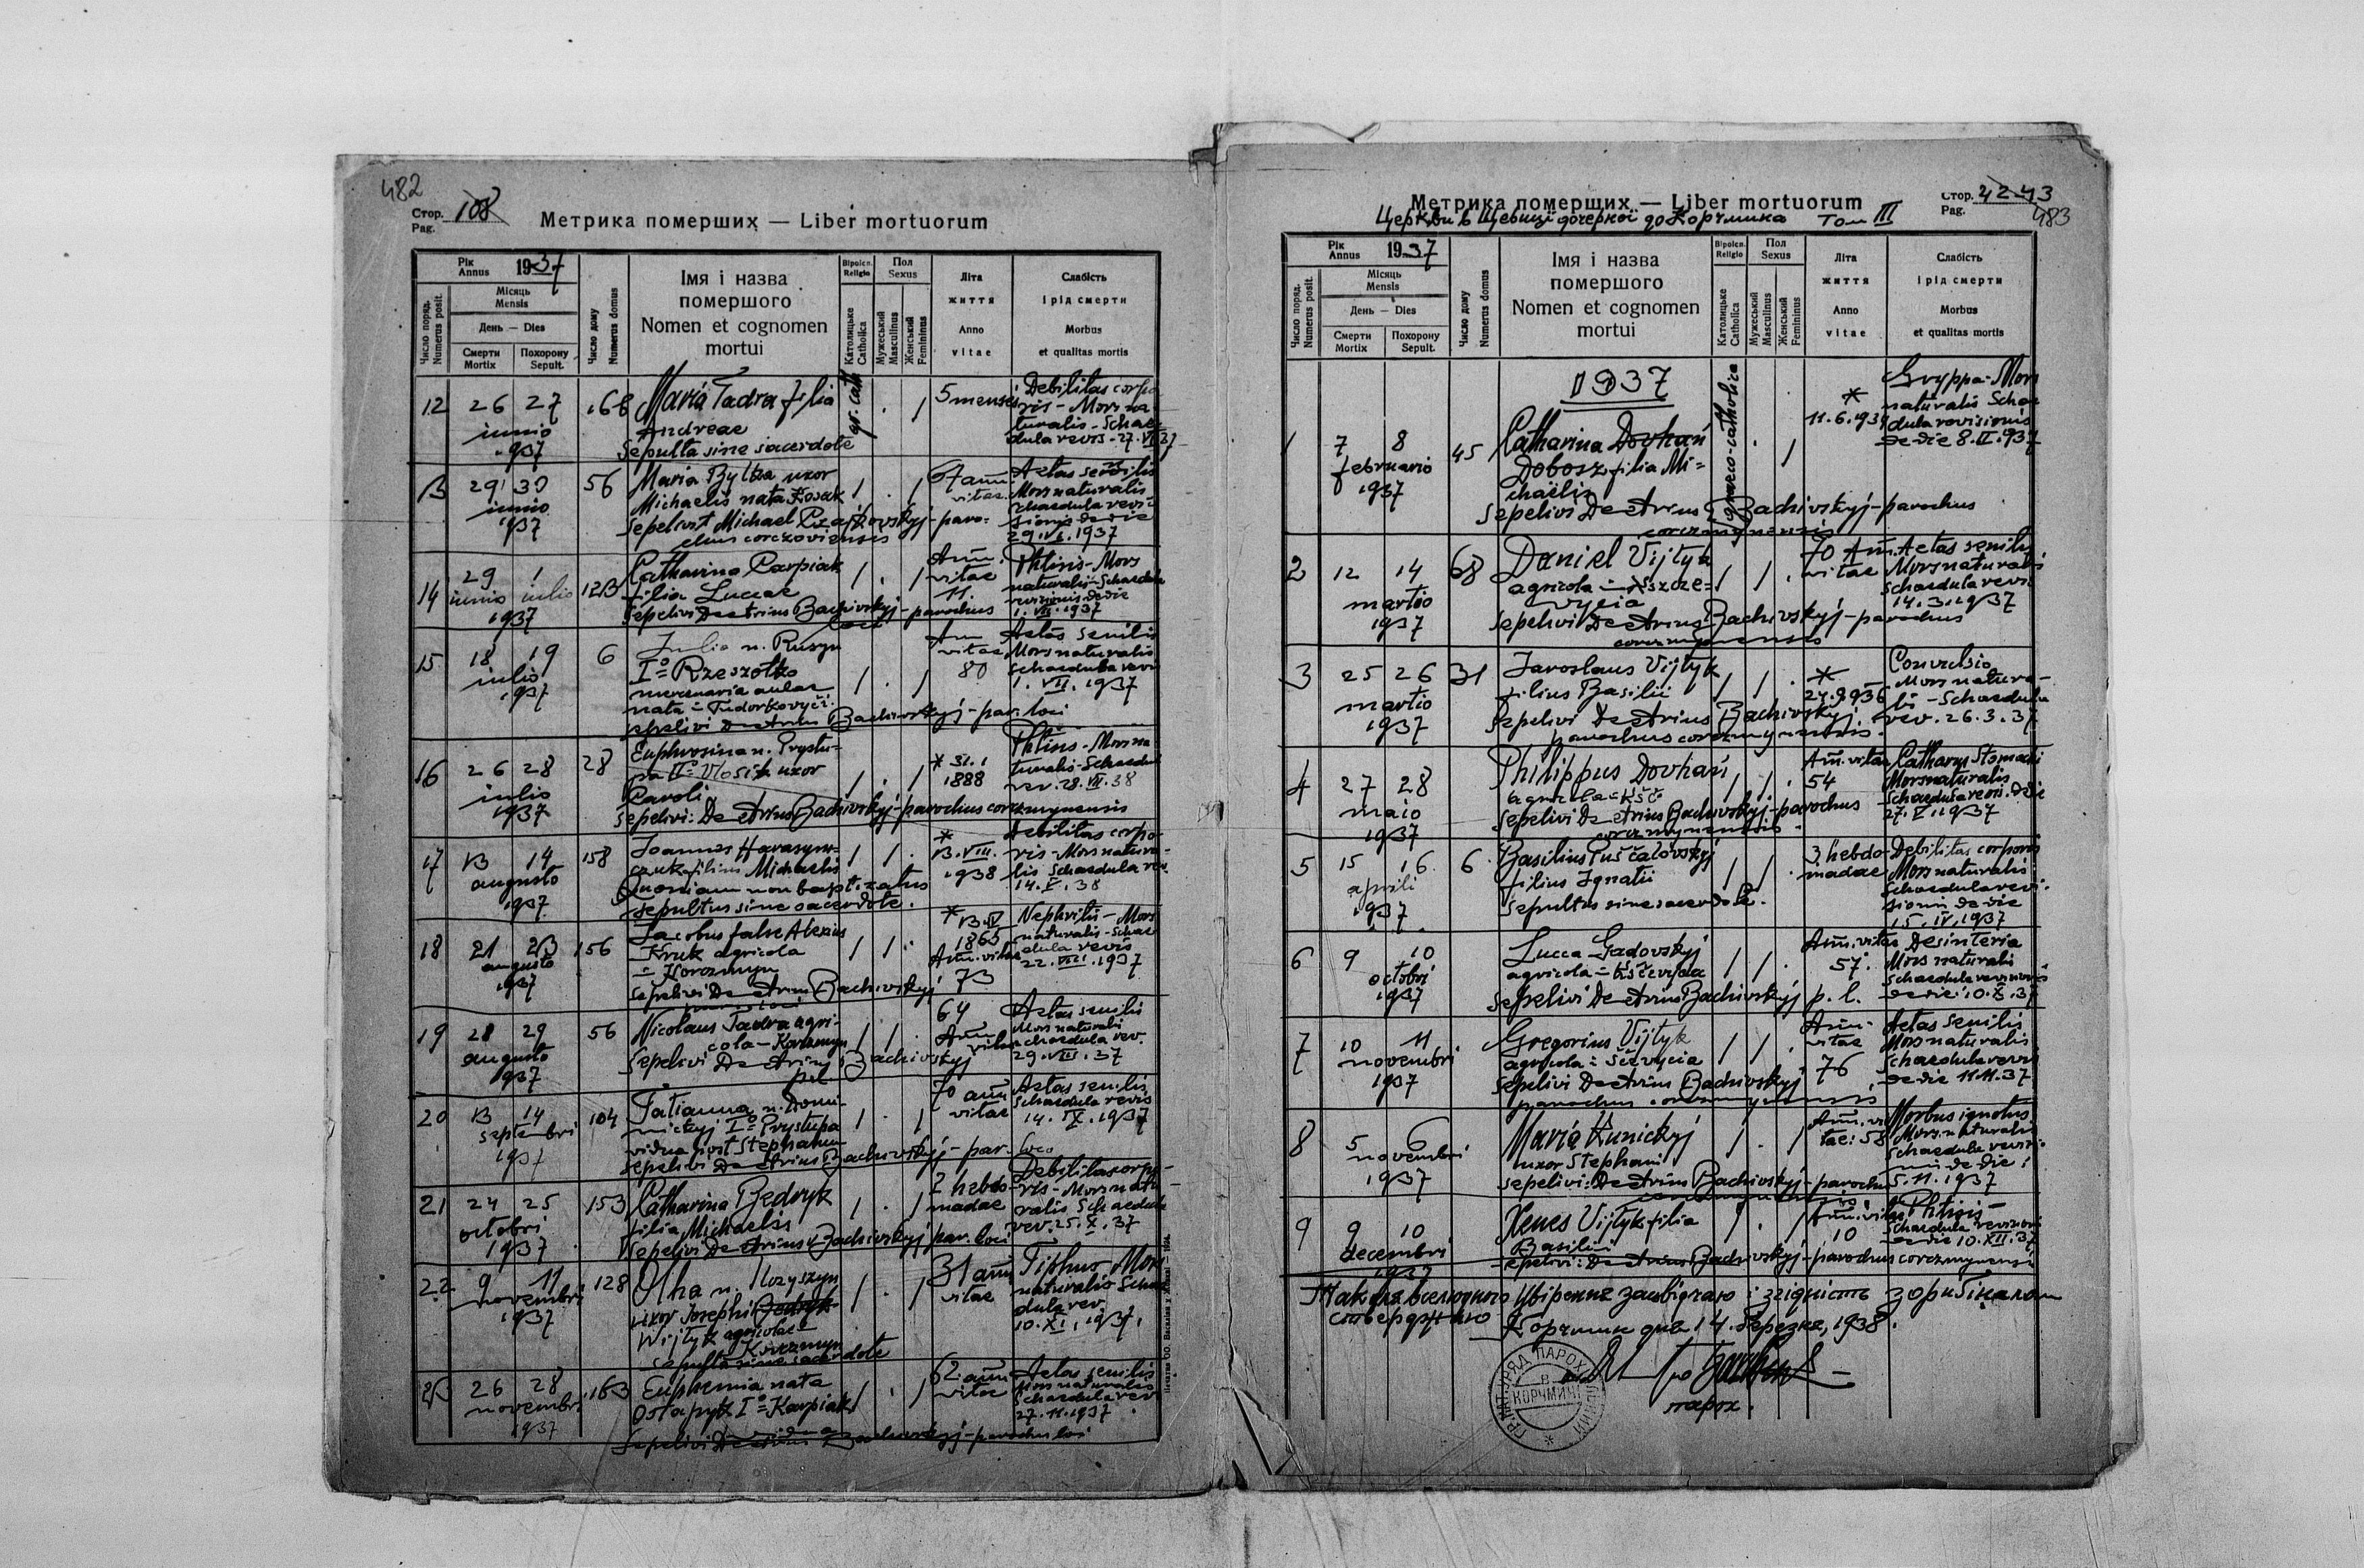 482
Стор. Pag. 108
Метрика померших — Liber mortuorum
Рік Annus 1937
Число поряд. Numerus posit.
Місяць Mensis
День — Dies
Смерти Mortix
Похорону Sepult.
Число дому Numerus domus
Імя і назва помершого
Nomen et cognomen mortui
Віроісп. Religio
Католицьке Catholica
Пол Sexus
Мужеський Masculinus
Женський Femininus
Літа життя
Anno vitae
Слабість і рід смерти
Morbus et qualitas mortis
12 26 27 168 Maria Tadra filia gr. cath . / 5 menses Debilitas corpo
iunio Andreae ris - Mors na
1937 Sepulta sine sacerdote turalis - Schae
dula revis - 27. VI 37
13 29 30 56 Maria uxor / . / 67 ann Aetas senilis
iunio Michaelis nata Kosak vitae Mors naturalis
1937 Sepelivit Michael - paro= Schaedula revi
chus corczoviensis sionis de die
29. VI. 1937
14 29 1 123 Catharina Karpiak / . / Ann. Phtisis - Mors
iunio iulio filia Luccae vitae naturalis - Schaedula
1937 Sepelivi Demetrius Bachivskyj - parochus 11. revisionis de die
loci 1. VII. 1937
15 18 19 6 Julia n. Rusyn / . / Ann Aetas senilis
iulio I° Rzeszotko vitae Mors naturalis
1937 mercenaria 80 Schaedula revi
nata = 1. VII. 1937
sepelivi Demetrius Bachivskyj - par. loci
16 26 28 28 Euphrosina n. Prystu= / . / * 31.1 Phtisis - Mors na
iulio pa II° uxor 1888 turalis - Schaedul
1937 Caroli rev. 28. VII. 38
Sepelivi: Demetrius Bachivskyj - parochus corczmynensis
17 13 14 158 Joannes Harasym= / / . * Debilitas corpo
augusto filius Michaelis 13. VIII. ris - Mors natura
1937 Quoniam non baptizatus 1938 lis Schaedula rev.
sepultus sine sacerdote.
18 21 23 156 Jacobus false Alexius / / . * 13. IV Nephritis - Mors
augusto Kruk agricola 1865 naturalis - Schae
1937 = Korczmyn Ann. vitae dula revis
Sepelivi Demetrius Bachivskyj 73 22. VIII. 1937
19 28 29 56 Nicolaus Tadra agri- / / . 64 Aetas senilis
augusto cola - Korczmyn Ann. Mors naturalis
1937 Sepelivi Demetrius Bachivskyj vitae Schaedula rev.
p.l. 29. VIII. 37
20 13 14 104 Tatianna n. / . / 70 ann Aetas senilis
septembri I° Prystupa vitae Schaedula revis
1937 vidua post Stephanum 14. IX. 1937
Sepelivi Demetrius Bachivskyj - par. loco
21 24 25 153 Catharina Bedryk / . / 2 hebdo Debilitas corpo-
octobri filia Michaelis madae ris - Mors natu
1937 Sepelivi Demetrius Bachivskyj par. loci ralis Schaedula
rev. 25. X. 37
22 9 11 128 Olha n. / . / 31 ann Tiphus Mors
novembri uxor Josephi vitae naturalis Schae
1937 Wijtyk agricolae = dula rev.
Korczmyn 10. XI. 1937.
sepulta sine sacerdote
23 26 28 163 Euphemia nata / . / 62 ann Aetas senilis
novembri Ostapyk I° = Karpiak vitae Mors naturalis
1937 vidua Schaedula revi
Sepelivi Demetrius Bachivskyj - parochus loci 27. 11. 1937
Метрика померших — Liber mortuorum
Стор. Pag. 43
483
Церкви в Щевиці дочеркої до Корчмина Том III
Рік Annus 1937
Число поряд. Numerus posit.
Місяць Mensis
День — Dies
Смерти Mortix
Похорону Sepult.
Число дому Numerus domus
Імя і назва помершого
Nomen et cognomen mortui
Віроісп. Religio
Католицьке Catholica
Пол Sexus
Мужеський Masculinus
Женський Femininus
Літа життя
Anno vitae
Слабість і рід смерти
Morbus et qualitas mortis
1937
1 7 8 45 Catharina Dovhań graeco-catholica . / * Gryppa - Mors
februario Dobosz filia Mi= 11.6.193 naturalis Schae
1937 chaëlis dula revisionis
de die 8. II. 937
Sepelivi Demetrius Bachivskyj - parochus
corczmynensis
2 12 14 68 Daniel Vijtyk / / . 70 Ann. Aetas senilis
martio agricola = vitae Mors naturalis
1937 Sepelivi Demetrius Bachivskyj - parochus Schaedula revi
corczmynensis 14. 3. 1937
3 25 26 31 Jaroslaus Vijtyk / / . * Convulsio
martio filius Basilii 24.9.936 Mors natura-
1937 Sepelivi Demetrius Bachivskyj. lis - Schaedula
parochus corczmynensis. rev. 26. 3. 37
4 27 28 Philippus Dovhań / / . Ann. vitae Catharus Stomachi
maio agricola = 54 Mors naturalis
1937 Sepelivi Demetrius Bachivskyj - parochus Schaedula revi. de die
corczmynensis. 27. V. 1937
5 15 16 6 Basilius Puščalovskyj / / . 3 hebdo- Debilitas corporis
aprili filius Ignatii madae Mors naturalis
1937 sepultus sine sacerdote. Schaedula revi
sionis de die
15. IV. 1937
6 9 10 Lucca Gadovskyj / / . Ann. vitae Desinteria
octobri agricola = 57. Mors naturali
1937 Sepelivi Demetrius Bachivskyj p. l. Schaedula revisionis
de die 10. X. 37
7 10 11 Gregorius Vijtyk / / . Ann. Aetas senilis
novembri agricola = Ščevycia vitae Mors naturalis
1937 Sepelivi Demetrius Bachivskyj 76 Schaedula revis
parochus corczmynensis de die 11. 11. 37
8 5 6 Maria Kunickyj / . / Ann. vi Morbus ignotus
novembri uxor Stephani tae: 58 Mors naturalis
1937 sepelivi: Demetrius Bachivskyj - parochus Schaedula revisi
corczmynensis. 5. 11. 1937
9 9 10 Xenes Vijtyk filia / . / Ann. vitae Phtisis -
decembri Basilii 10 Schaedula revisioni
1937 Sepelivi: Demetrius Bachivskyj - parochus corczmynensis de die 10. XII. 37
засвідчаю і згідність з оригіналом
стверджаю
Корчмин дня 14. березня, 1938.
парох.
КОРЧМИНІ